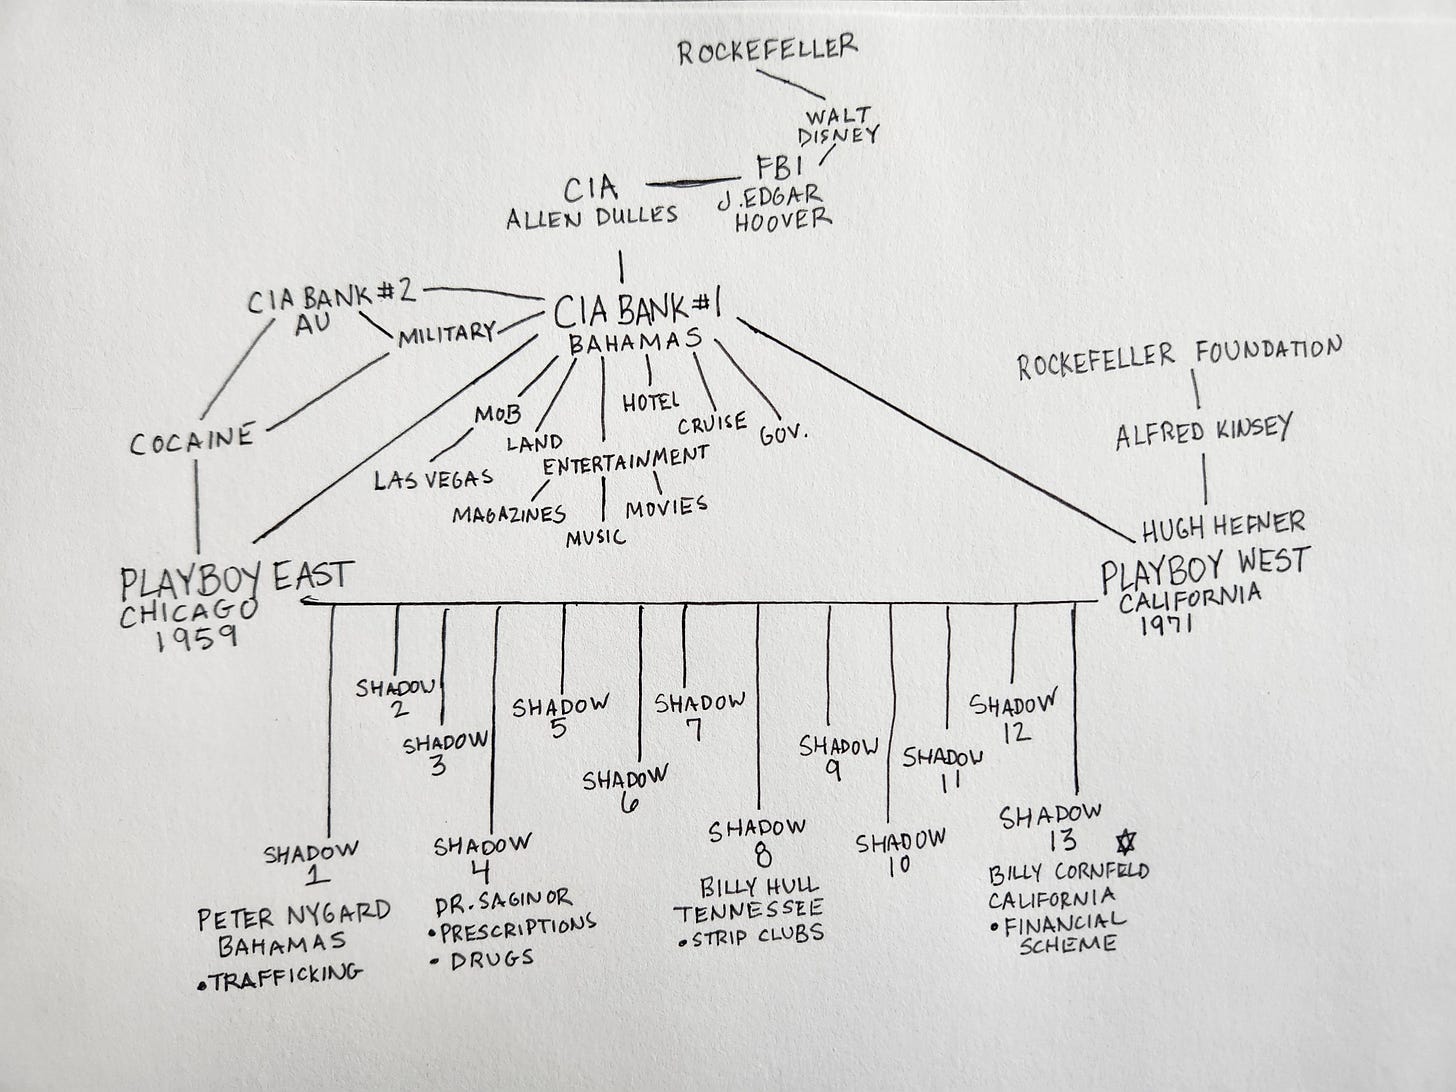 ROCKEFELLER
WALT
DISNEY
FBI
J. EDGAR
HOOVER
CIA
ALLEN DULLES
CIA BANK #2
AU
MILITARY
CIA BANK #1
BAHAMAS
MOB
LAS VEGAS
LAND
HOTEL
CRUISE
GOV.
ENTERTAINMENT
MAGAZINES
MUSIC
MOVIES
COCAINE
ROCKEFELLER FOUNDATION
ALFRED KINSEY
HUGH HEFNER
PLAYBOY WEST
CALIFORNIA
1971
PLAYBOY EAST
CHICAGO
1959
SHADOW
1
PETER NYGARD
BAHAMAS
• TRAFFICKING
SHADOW
2
SHADOW
3
SHADOW
4
DR. SAGINOR
• PRESCRIPTIONS
• DRUGS
SHADOW
5
SHADOW
6
SHADOW
7
SHADOW
8
BILLY HULL
TENNESSEE
• STRIP CLUBS
SHADOW
9
SHADOW
10
SHADOW
11
SHADOW
12
SHADOW
13 ✡
BILLY CORNFELD
CALIFORNIA
• FINANCIAL
SCHEME